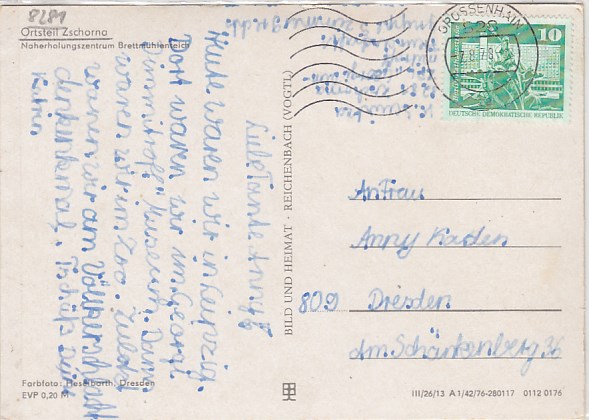 8281
Ortsteil Zschorna
Naherholungszentrum Brettmühlenteich
Liebe Tante Anny!
Heute waren wir in Leipzig.
Dort waren wir im Georgi-
Dimmitroff Museum. Dann
waren wir im Zoo. Zuletzt
waren wir am Völkerschlacht
denkmal. Tschüß Deine
Katrin
Farbfoto: Hesselbarth, Dresden
EVP 0,20 M
BILD UND HEIMAT · REICHENBACH (VOGTL)
GROSSENHAIN
10
DEUTSCHE DEMOKRATISCHE REPUBLIK
An Frau
Anny Kaden
809 Dresden
Am Schänkenberg 36
III/26/13 A 1/42/76-280117 0112 0176